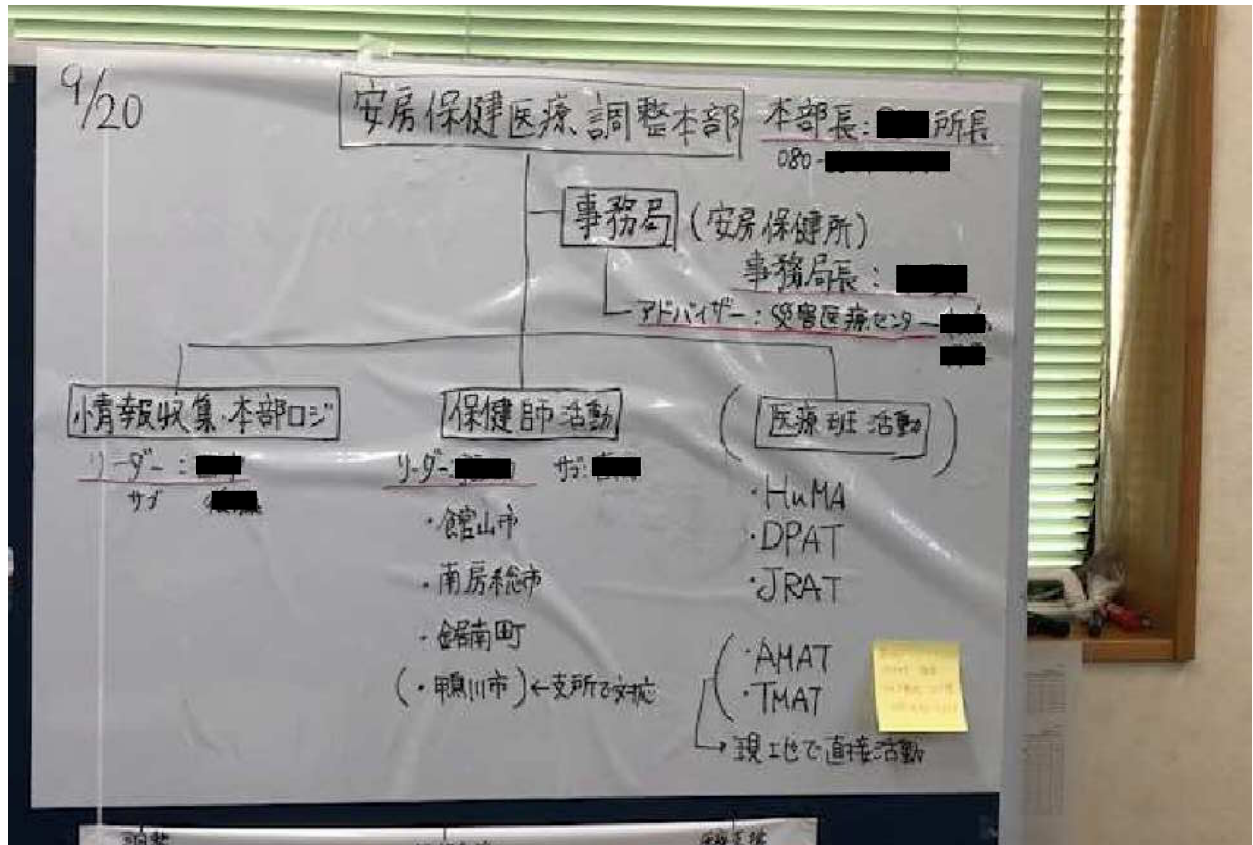 9/20
安房保健医療調整本部
本部長: 所長
080-
事務局 (安房保健所)
事務局長:
アドバイザー:災害医療センター
情報収集・本部ロジ
リーダー:
サブ
保健師活動
リーダー: サブ:
・館山市
・南房総市
・鋸南町
(・鴨川市)←支所で対応
(医療班活動)
・HuMA
・DPAT
・JRAT
(・AMAT
・TMAT
→現地で直接活動
調整